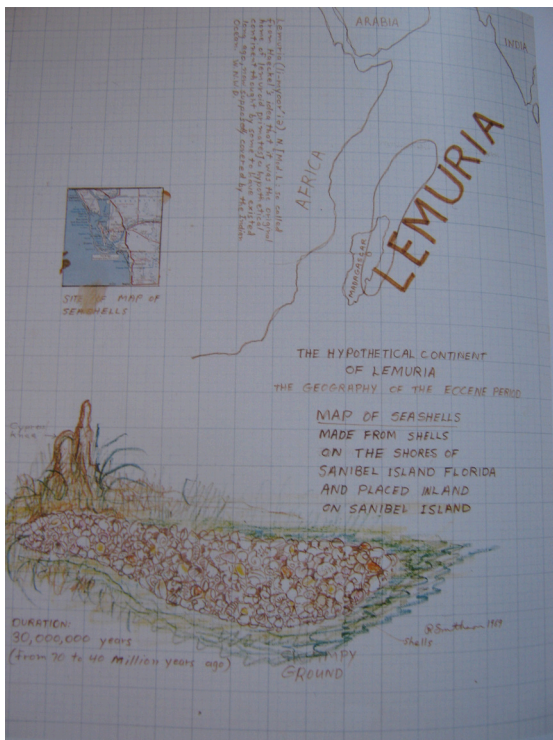 ARABIA
INDIA
AFRICA
MADAGASCAR
LEMURIA
N. [Mod. L.; so called
from Haeckel's idea that it was the original
home of lemuroid primates] a hypothetical
continent thought by some to have existed
long ago, now supposedly covered by the Indian
Ocean.
SITE OF MAP OF
SEASHELLS
THE HYPOTHETICAL CONTINENT
OF LEMURIA
THE GEOGRAPHY OF THE EOCENE PERIOD
MAP OF SEASHELLS
MADE FROM SHELLS
ON THE SHORES OF
SANIBEL ISLAND FLORIDA
AND PLACED INLAND
ON SANIBEL ISLAND
DURATION:
30,000,000 years
(from 70 to 40 Million years ago)
Shells
R Smithson 1969
SWAMPY
GROUND